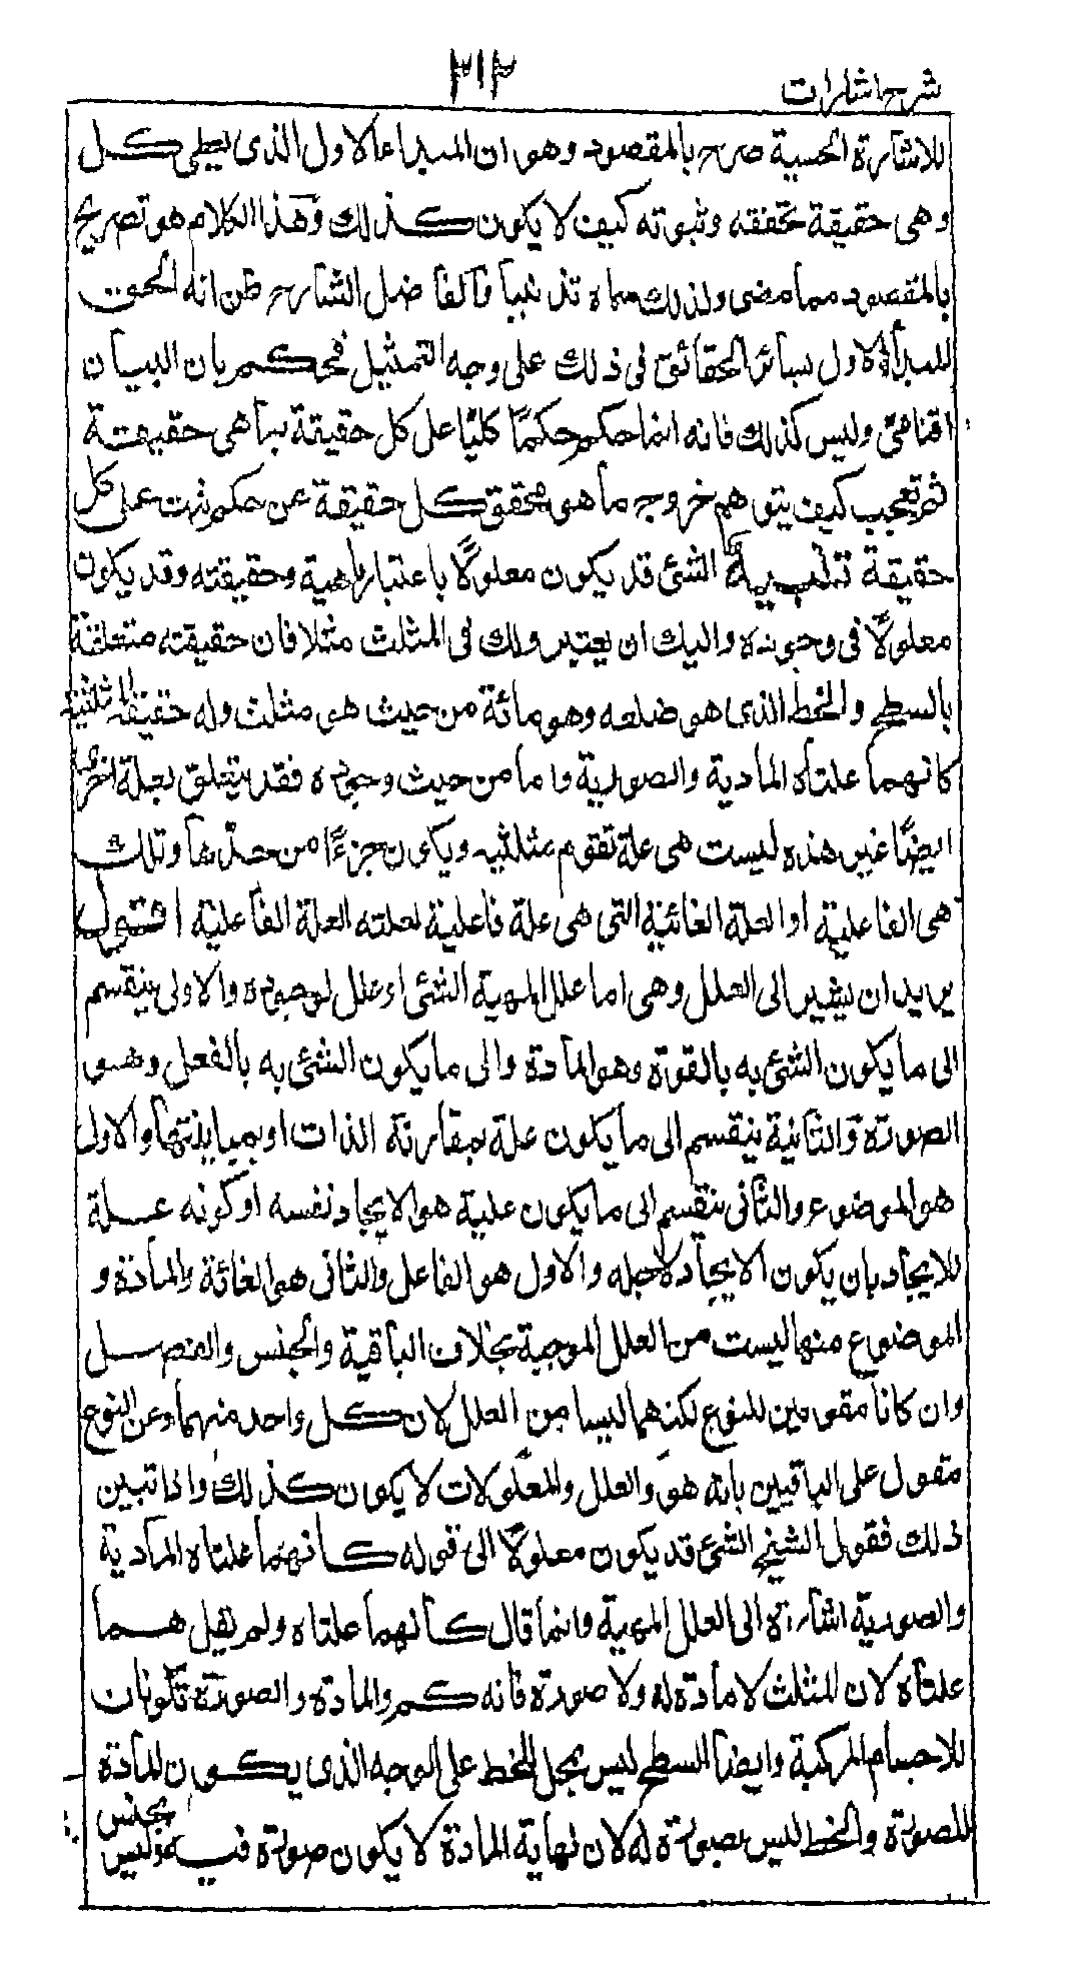 شرح اشارات
٣١٢
للاشارة الحسية صرح بالمقصود وهو ان المبداء الاول الذى يعطى كل
وهى حقيقة تحققه وثبوته كيف لا يكون كذلك وهذا الكلام هو تصريح
بالمقصود مما مضى ولذلك سماه تذنيبا فالفاضل الشارح ظن انه الحق
المبدأ الاول بسائر الحقائق فى ذلك على وجه التمثيل فحكم بان البيان
اقناعى وليس كذلك فانه انما حكم حكمًا كليًا على كل حقيقة بما هى حقيقة
ثم تعجب كيف يتوهم خروج ما هو محقق كل حقيقة عن حكم ثبت على كل
حقيقة تنبيه الشئ قد يكون معلولًا باعتبار ماهية وحقيقته وقد يكون
معلولًا فى وجوده واليك ان يعتبر ذلك فى المثلث مثلا فان حقيقته متعلقة
بالسطح والخط الذى هو ضلعه وهو مائة من حيث هو مثلث وله حقيقة المثلثية
كانهما علتاه المادية والصورية واما من حيث وجوده فقد يتعلق بعلة اخرى
ايضًا غير هذه ليست هى علة تقوم مثلثيه ويكون جزءًا من حدها وتلك
هى الفاعلية او العلة الغائية التى هى علة فاعلية لعلته العلة الفاعلية اقول
يريد ان يشير الى العلل وهى اما علل لمهية الشئ او علل لوجوده والاولى ينقسم
الى ما يكون الشئ به بالقوة وهو المادة والى ما يكون الشئ به بالفعل وهو
الصورة والثانية ينقسم الى ما يكون علة بمقارنة الذات او بمباينتها والاول
هو الموضوع والثانى ينقسم الى ما يكون علية هو الايجاد نفسه او كونه علة
للايجاد بان يكون الايجاد لاجله والاول هو الفاعل والثانى هو الغائة والمادة و
الموضوع منها ليست من العلل الموجبة بخلاف الباقية والجنس والفصل
وان كانا مقومين للنوع لكنهما ليسا من العلل لان كل واحد منهما وعن النوع
مقول على الباقيين بانه هو والعلل والمعلولات لا يكون كذلك واذا تبين
ذلك فقول الشيخ الشئ قد يكون معلولًا الى قوله كانهما علتاه المادية
والصورية اشارة الى العلل المهية وانما قال كانهما علتاه ولم يقل هما
علتاه لان المثلث لا مادة له ولا صورة فانه كم والمادة والصورة تكونان
للاجسام المركبة وايضا السطح ليس بمحل للخط على الوجه الذى يكون المادة
للصورة والخط ليس بصورة له لان نهاية المادة لا يكون صورة فيه وليس
بجنس